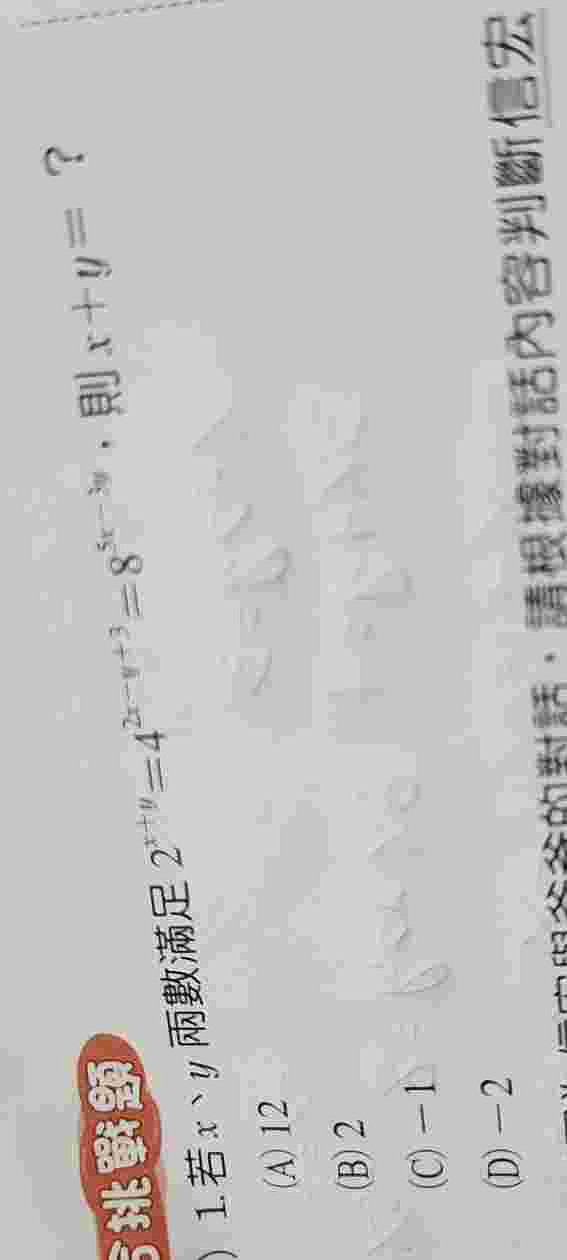 挑戰題
1.若 x、y 兩數滿足 2^{x+y}=4^{2x-y+3}=8^{5x-3y}，則 x+y=？
(A) 12
(B) 2
(C) -1
(D) -2
的對話，請根據對話內容判斷信宏